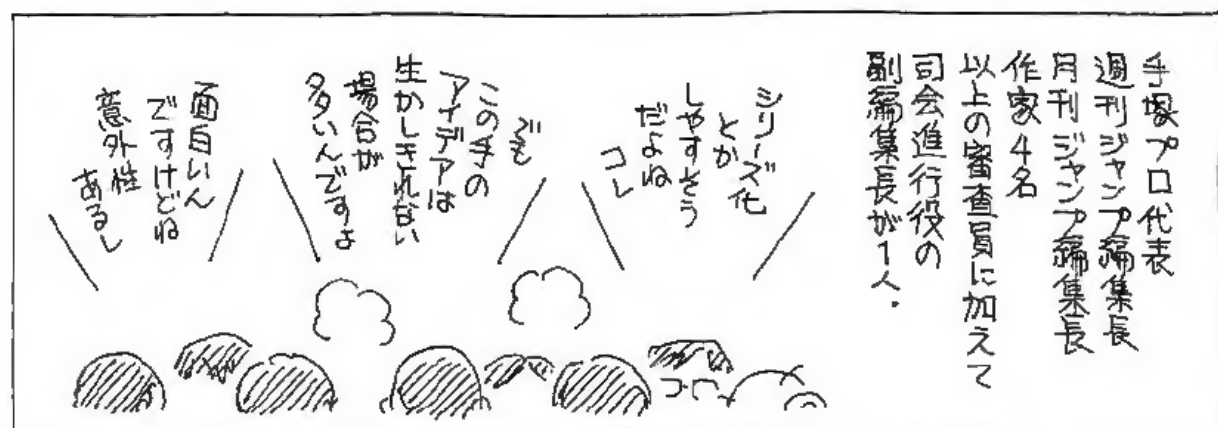 手塚プロ代表
週刊ジャンプ編集長
月刊ジャンプ編集長
作家4名
以上の審査員に加えて
司会進行役の
副編集長が1人.
シリーズ化
とか
しやすそう
だよね
コレ
でも
この手の
アイデアは
生かしきれない
場合が
多いんですよ
面白いん
ですけどね
意外性
あるし